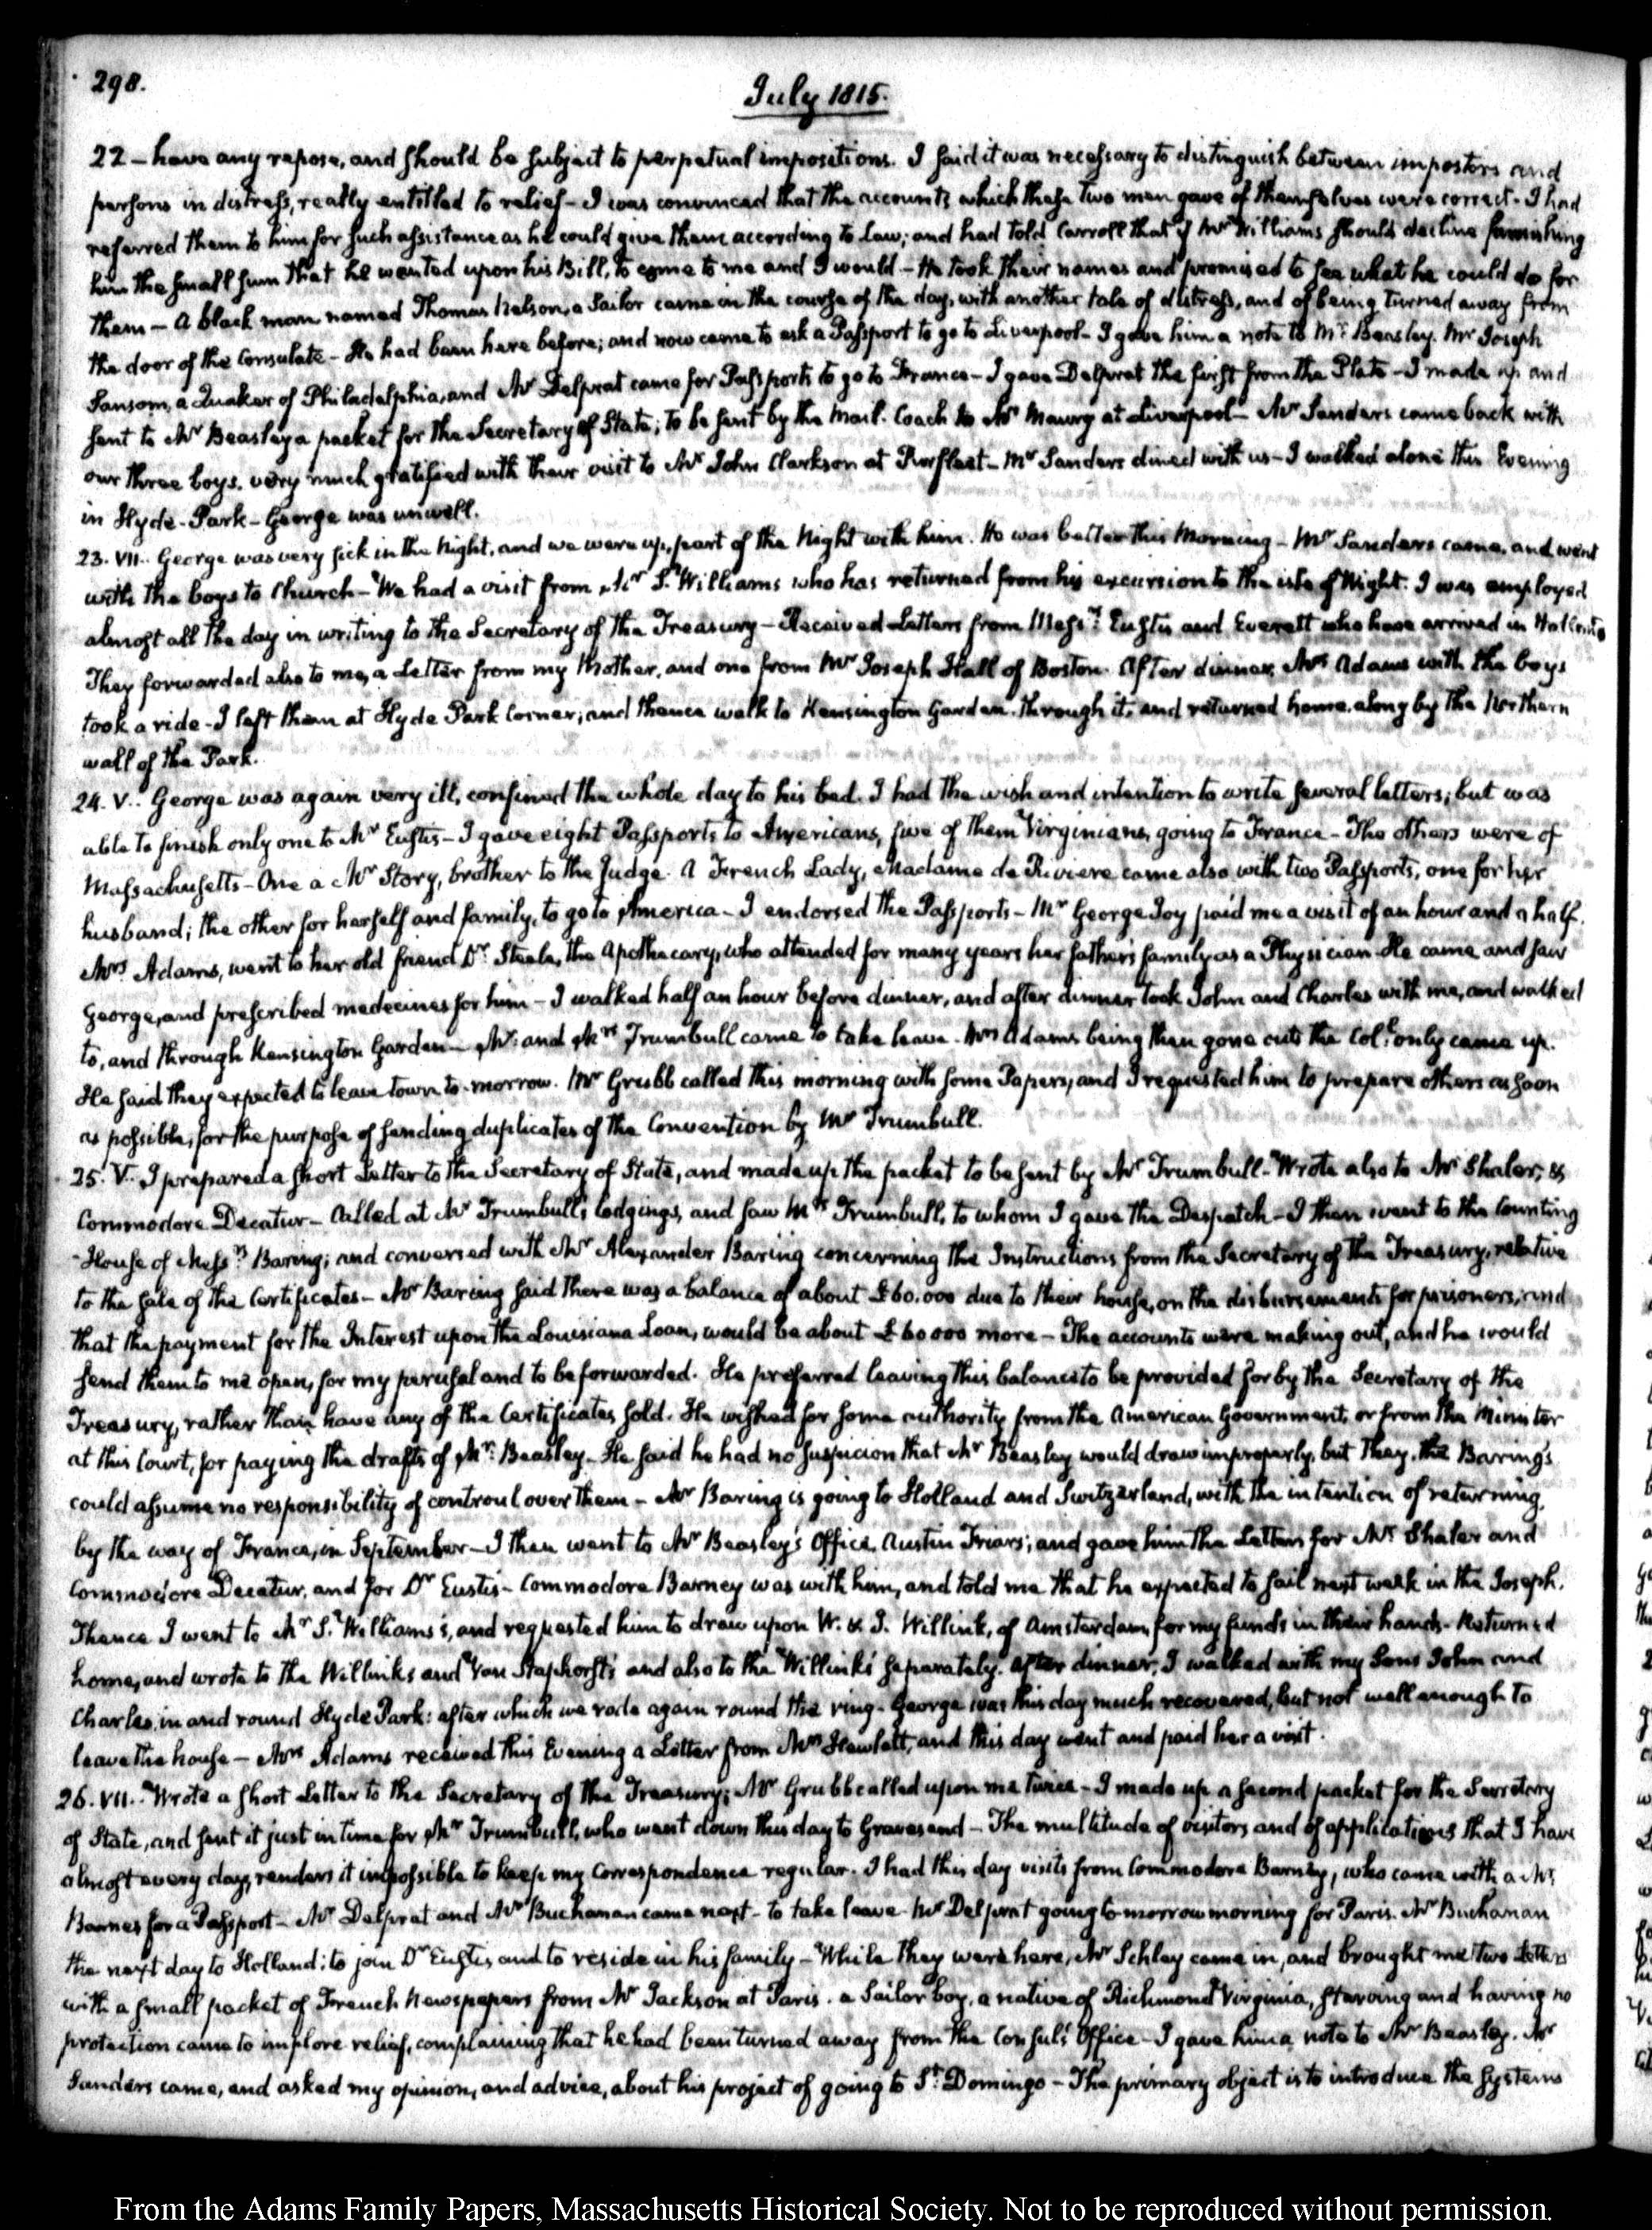 298.
July 1815.
22 – have any repose, and should be subject to perpetual impositions. I said it was necessary to distinguish between impostors and
persons in distress, really entitled to relief – I was convinced that the accounts which these two men gave of themselves were correct – I had
referred them to him for such assistance as he could give them according to Law; and had told Carroll that if Mr Williams should decline furnishing
him the small sum that he wanted upon his Bill, to come to me and I would – He took their names and promised to see what he could do for
them – A black man named Thomas Nelson, a Sailor came in the course of the day, with another tale of distress, and of being turned away from
the door of the Consulate – He had been here before; and now came to ask a Passport to go to Liverpool – I gave him a note to Mr Beasley. Mr Joseph
Sansom, a Quaker of Philadelphia, and Mr Delprat came for Passports to go to France – I gave Delprat the first from the Plate – I made up and
sent to Mr Beasley a packet for the Secretary of State; to be sent by the Mail-Coach to Mr Maury at Liverpool – Mr Sanders came back with
our three boys, very much gratified with their visit to Mr John Clarkson at Purfleet – Mr Sanders dined with us – I walked alone this Evening
in Hyde-Park – George was unwell.
23. VII.. George was very sick in the Night, and we were up, part of the Night with him. He was better this Morning – Mr Sanders came, and went
with the boys to Church – We had a visit from Mr S. Williams who has returned from his excursion to the isle of Wight. I was employed
almost all the day in writing to the Secretary of the Treasury – Received Letters from Messrs Eustis and Everett who have arrived in Holland
They forwarded also to me, a Letter from my Mother, and one from Mr Joseph Hall of Boston. After dinner, Mrs Adams with the boys
took a ride – I left them at Hyde Park Corner, and thence walk to Kensington Garden, through it, and returned home, along by the Northern
wall of the Park.
24. V.. George was again very ill, confined the whole day to his bed. I had the wish and intention to write several letters; but was
able to finish only one to Mr Eustis – I gave eight Passports to Americans, five of them Virginians, going to France – The others were of
Massachusetts – One a Mr Story, brother to the Judge. A French Lady, Madame de Riviere came also with two Passports, one for her
husband; the other for herself and family, to go to America – I endorsed the Passports – Mr George Joy paid me a visit of an hour and a half.
Mrs Adams, went to her old friend Dr Steele, the Apothecary, who attended for many years her father's family as a Physician. He came and saw
George, and prescribed medecines for him – I walked half an hour before dinner, and after dinner took John and Charles with me, and walked
to, and through Kensington Garden – Mr and Mrs Trumbull came to take leave. Mrs Adams being then gone out, the Coll only came up.
He said they expected to leave town to-morrow. Mr Grubb called this morning with some Papers, and I requested him to prepare others as soon
as possible, for the purpose of sending duplicates of the Convention by Mr Trumbull.
25. V.. I prepared a short Letter to the Secretary of State, and made up the packet to be sent by Mr Trumbull – Wrote also to Mr Shaler, &
Commodore Decatur – Called at Mr Trumbull's lodgings, and saw Mrs Trumbull, to whom I gave the Despatch – I then went to the Counting
-House of Messrs Baring; and conversed with Mr Alexander Baring concerning the Instructions from the Secretary of the Treasury, relative
to the sale of the Certificates – Mr Baring said there was a balance of about £60.000 due to their house, on the disbursements for prisoners, and
that the payment for the Interest upon the Louisiana Loan, would be about £60000 more – The accounts were making out, and he would
send them to me open, for my perusal and to be forwarded. He preferred leaving this balance to be provided for by the Secretary of the
Treasury, rather than have any of the Certificates sold. He wished for some authority from the American Government, or from the Minister
at this Court, for paying the drafts of Mr Beasley – He said he had no suspicion that Mr Beasley would draw improperly, but they, the Barings
could assume no responsibility of controul over them – Mr Baring is going to Holland and Switzerland, with the intention of returning
by the way of France, in September – I then went to Mr Beasley's Office, Austin Friars; and gave him the Letters for Mr Shaler and
Commodore Decatur, and for Dr Eustis – Commodore Barney was with him, and told me that he expected to sail next week in the Joseph.
Thence I went to Mr S. Williams's, and requested him to draw upon W. & J. Willink, of Amsterdam, for my funds in their hands – Returned
home, and wrote to the Willinks and Van Staphorsts and also to the Willinks separately. After dinner, I walked with my Sons John and
Charles, in and round Hyde Park: after which we rode again round the ring – George was this day much recovered, but not well enough to
leave the house – Mrs Adams received this Evening a Letter from Mrs Hewlett, and this day went and paid her a visit.
26. VII.. Wrote a short Letter to the Secretary of the Treasury; Mr Grubb called upon me twice – I made up a second packet for the Secretary
of State, and sent it just in time for Mr Trumbull, who went down this day to Gravesend – The multitude of visitors and of applications that I have
almost every day, renders it impossible to keep my Correspondence regular. I had this day visits from Commodore Barney, who came with a Mr
Barnes for a Passport – Mr Delprat and Mr Buchanan came next – to take leave – Mr Delprat going to-morrow morning for Paris. Mr Buchanan
the next day to Holland; to join Dr Eustis, and to reside in his family – While they were here, Mr Schley came in, and brought me two Letters
with a small packet of French Newspapers from Mr Jackson at Paris. a Sailor boy, a native of Richmond Virginia, starving and having no
protection came to implore relief, complaining that he had been turned away from the Consul's Office – I gave him a note to Mr Beasley. Mr
Sanders came, and asked my opinion, and advice, about his project of going to St Domingo – The primary object is to introduce the systems
From the Adams Family Papers, Massachusetts Historical Society. Not to be reproduced without permission.